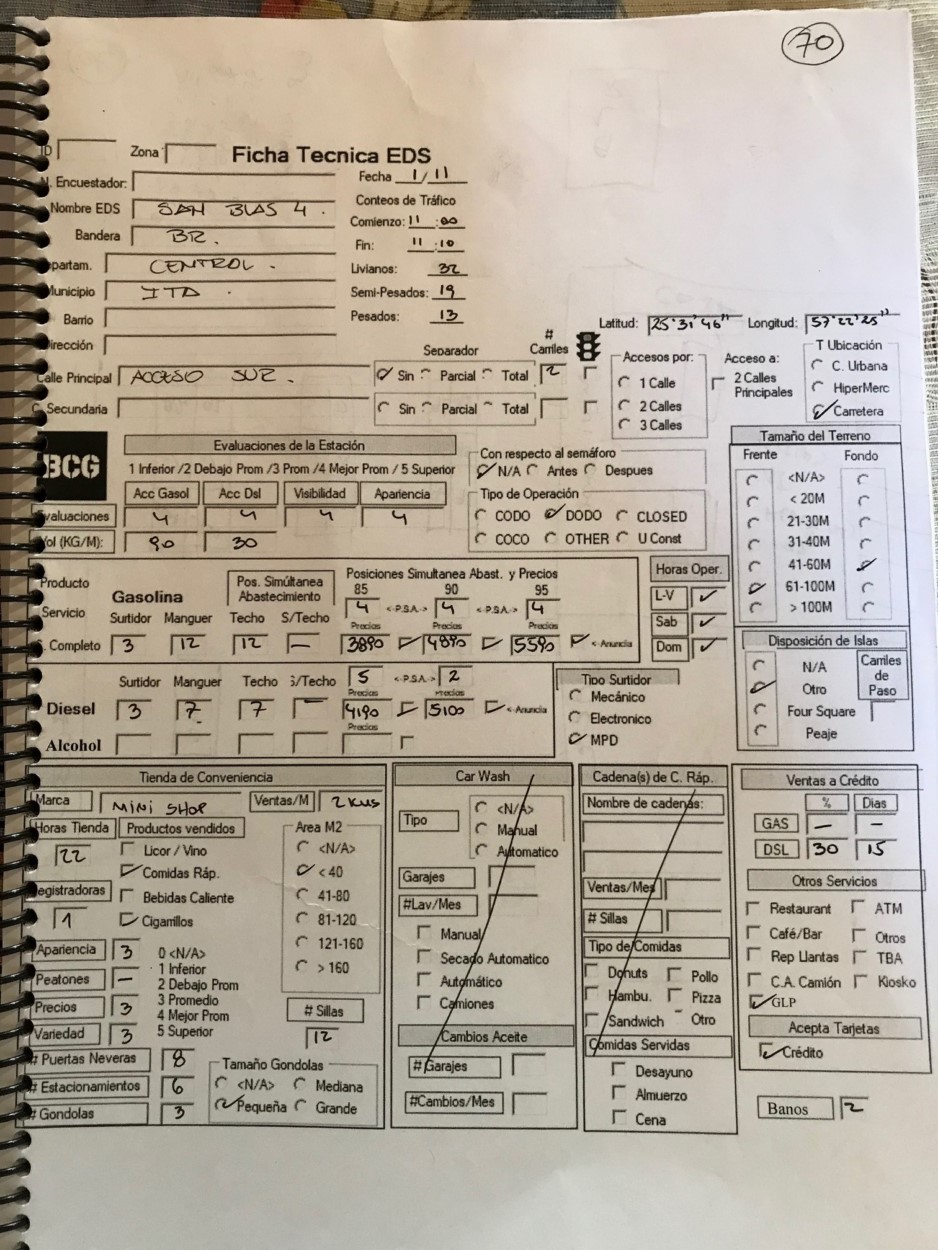 70
ID Zona Ficha Tecnica EDS
Fecha 1/11
N. Encuestador:
Conteos de Tráfico
Nombre EDS SAN BLAS 4.
Comienzo: 11:00
Bandera BR.
Fin: 11:10
partam. CENTROL.
Livianos: 32
Municipio ITA.
Semi-Pesados: 19
Barrio
Pesados: 13
Latitud: 25°31'46" Longitud: 57°22'25"
Dirección
Separador # Carriles
Accesos por: Acceso a: T Ubicación
Calle Principal ACCESO SUR. Sin Parcial Total 2
1 Calle 2 Calles Principales C. Urbana
2 Calles HiperMerc
C. Secundaria Sin Parcial Total
3 Calles Carretera
BCG
Evaluaciones de la Estación
Con respecto al semáforo
Tamaño del Terreno
1 Inferior /2 Debajo Prom /3 Prom /4 Mejor Prom / 5 Superior
N/A Antes Despues
Frente Fondo
Acc Gasol Acc Dsl Visibilidad Apariencia
Tipo de Operación
<N/A>
Evaluaciones 4 4 4 4
CODO DODO CLOSED
< 20M
Vol (KG/M): 90 30
COCO OTHER U Const
21-30M
31-40M
41-60M
61-100M
> 100M
Producto Gasolina Pos. Simúltanea Abastecimiento Posiciones Simultanea Abast. y Precios
Horas Oper.
85 90 95
L-V
Servicio Surtidor Manguer Techo S/Techo 4 <-P.S.A.-> 4 <-P.S.A.-> 4
Sab
Precios Precios Precios
. Completo 3 12 12 — 3890 4890 5590 <-Anuncia
Dom
Disposición de Islas
N/A
Otro
Four Square
Peaje
Carriles de Paso
Surtidor Manguer Techo S/Techo 5 <-P.S.A-> 2
Tipo Surtidor
Precios Precios
Mecánico
Diesel 3 7 7 — 4190 5100 <-Anuncia
Electronico
Precios
MPD
Alcohol
Tienda de Conveniencia
Marca MINI SHOP Ventas/M 2 KUS
Horas Tienda Productos vendidos Area M2
22 Licor / Vino <N/A>
Comidas Ráp. < 40
Registradoras Bebidas Caliente 41-80
1 Cigarrillos 81-120
Apariencia 3 0 <N/A> 121-160
1 Inferior
Peatones — 2 Debajo Prom > 160
Precios 3 3 Promedio
4 Mejor Prom # Sillas
Variedad 3 5 Superior 12
# Puertas Neveras 8 Tamaño Gondolas
# Estacionamientos 6 <N/A> Mediana
# Gondolas 3 Pequeña Grande
Car Wash
Tipo
<N/A>
Manual
Automatico
Garajes
#Lav/Mes
Manual
Secado Automatico
Automático
Camiones
Cambios Aceite
#Garajes
#Cambios/Mes
Cadena(s) de C. Ráp.
Nombre de cadenas:
Ventas/Mes
# Sillas
Tipo de Comidas
Donuts Pollo
Hambu. Pizza
Sandwich Otro
Comidas Servidas
Desayuno
Almuerzo
Cena
Ventas a Crédito
% Dias
GAS — —
DSL 30 15
Otros Servicios
Restaurant ATM
Café/Bar Otros
Rep Llantas TBA
C.A. Camión Kiosko
GLP
Acepta Tarjetas
Crédito
Banos 2